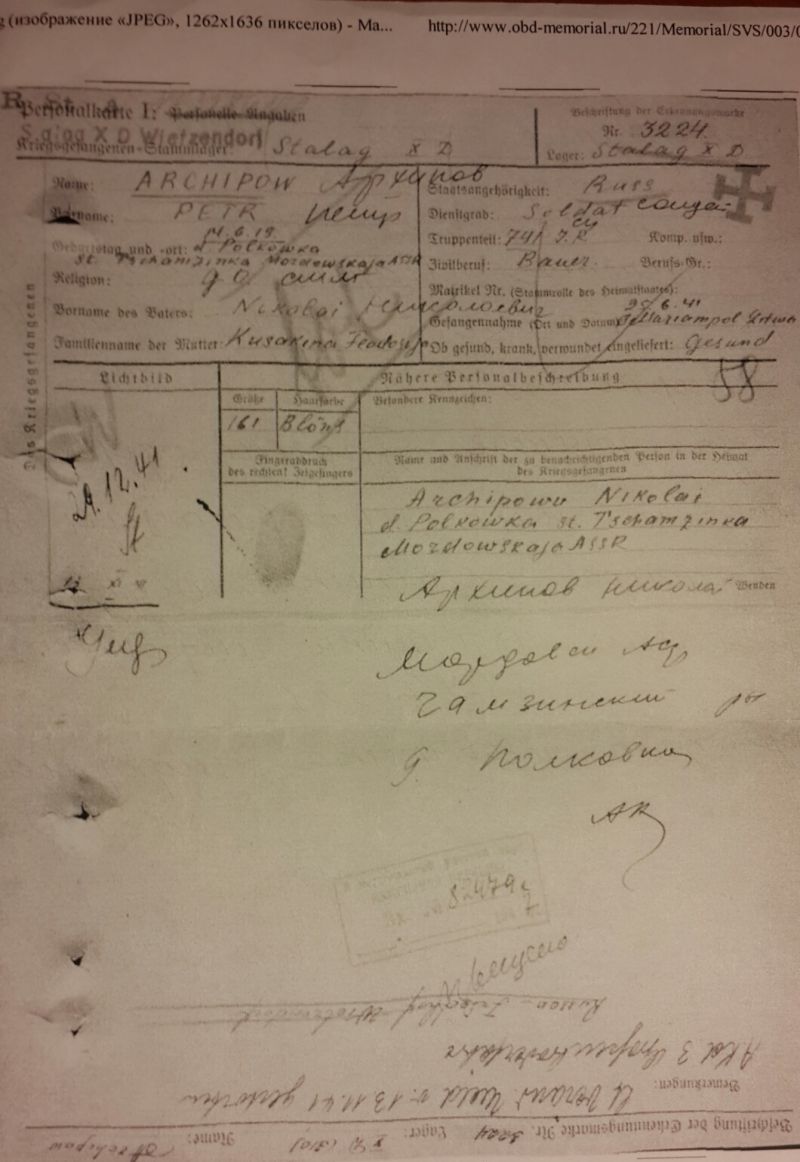 (изображение «JPEG», 1262x1636 пикселов) - Ma... http://www.obd-memorial.ru/221/Memorial/SVS/003/
Personalkarte I: Personelle Angaben
Beschriftung der Erkennungsmarke
Nr. 3224
Stalag X D Wietzendorf
Kriegsgefangenen-Stammlager: Stalag X D
Lager: Stalag X D
Name: ARCHIPOW Архипов
Staatsangehörigkeit: Russ
Vorname: PETR Петр
Dienstgrad: Soldat солдат
Geburtstag und -ort: 14.6.19. d Polkowka
st. Tschamzinka Mordowskaja ASSR
Truppenteil: 741 J.R Komp. usw.:
Religion:
Zivilberuf: Bauer Berufs-Gr.:
Matrikel Nr. (Stammrolle des Heimatstaates):
Vorname des Vaters: Nikolai
Gefangennahme (Ort und Datum): 6.41 Mariampol
Familienname der Mutter: Kusakina
Ob gesund, krank, verwundet eingeliefert: Gesund
Des Kriegsgefangenen
Lichtbild
Nähere Personalbeschreibung
58
Größe Haarfarbe Besondere Kennzeichen:
161 Blond
Fingerabdruck
des rechten! Zeigefingers
Name und Anschrift der zu benachrichtigenden Person in der Heimat
des Kriegsgefangenen
12.41
Archipowu Nikolai
d. Polkowka st. Tschamzinka
Mordowskaja ASSR
Архипов Николай
Wenden
Мордовск
Чамзинский
д Полковка
Bemerkungen:
13.11.41 gestorben
Beschriftung der Erkennungsmarke Nr. 3224 Lager: X D (310) Name: Archipow